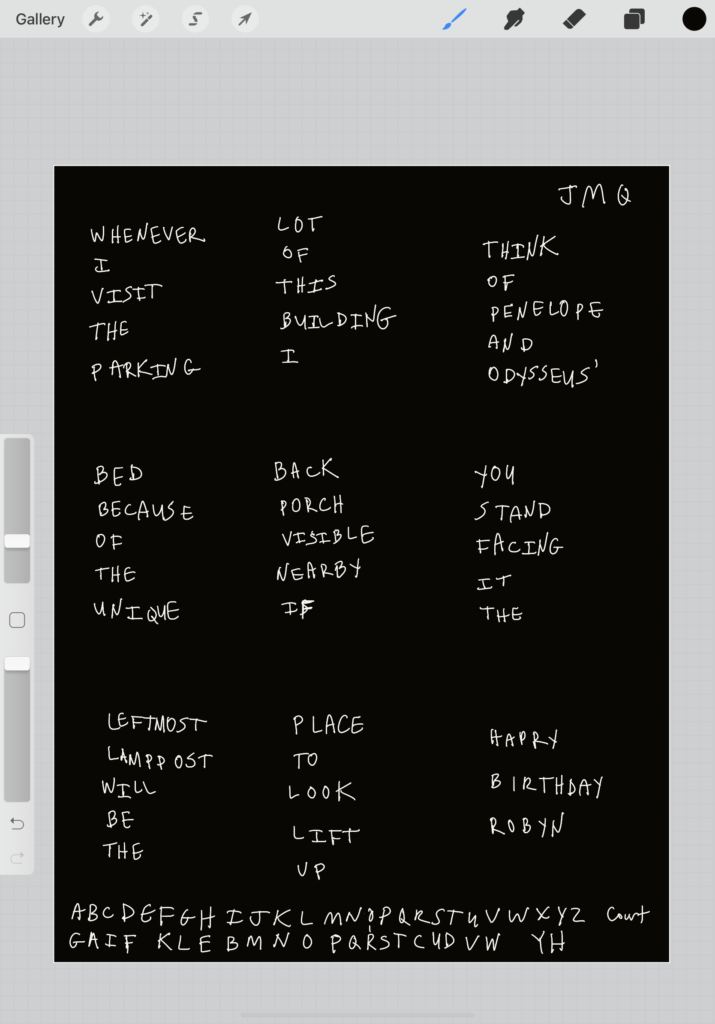 Gallery
JMQ
WHENEVER
I
VISIT
THE
PARKING
LOT
OF
THIS
BUILDING
I
THINK
OF
PENELOPE
AND
ODYSSEUS'
BED
BECAUSE
OF
THE
UNIQUE
BACK
PORCH
VISIBLE
NEARBY
IF
YOU
STAND
FACING
IT
THE
LEFTMOST
LAMPPOST
WILL
BE
THE
PLACE
TO
LOOK
LIFT
UP
HAPPY
BIRTHDAY
ROBYN
ABCDEFGH IJKL MNOPQRSTUVWXYZ Count
GAIF KLE BMNO PQRSTCUDVW YH